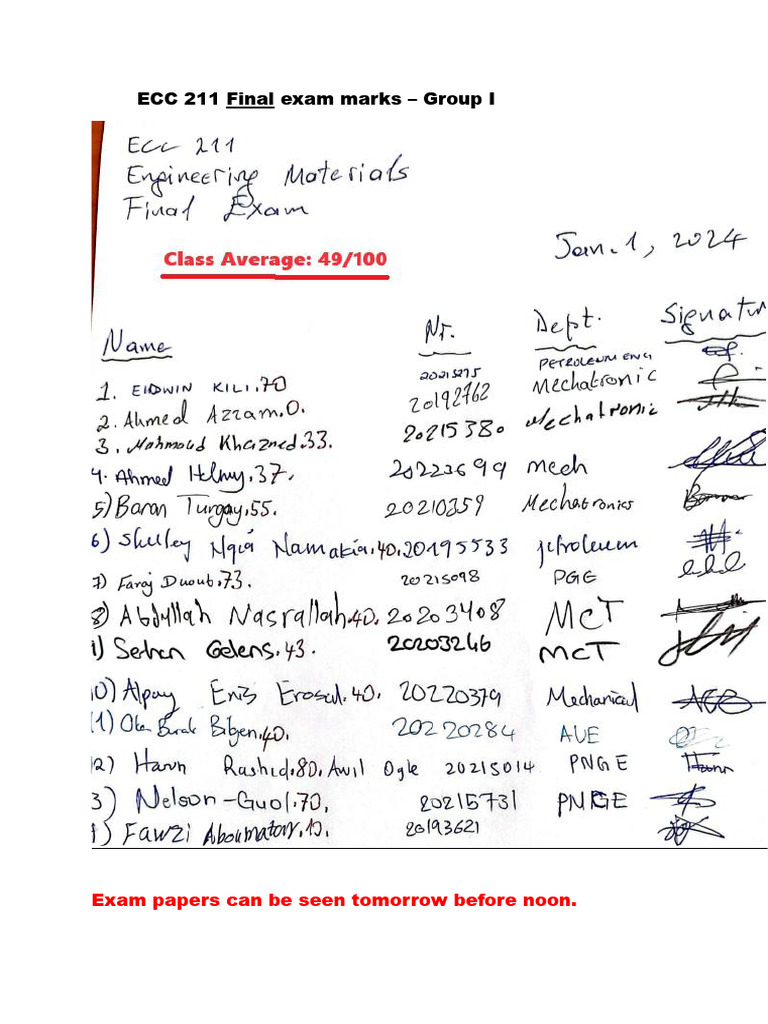 ECC 211 Final exam marks – Group I
ECC 211
Engineering Materials
Final Exam
Class Average: 49/100
Jan. 1, 2024
Name Nr. Dept. Signatur
1. EIDWIN KILI.70 20215275 PETROLEUM ENG
2. Ahmed Azzam.0. 20192762 Mechatronic
3. Mahmoud Khazned.33. 20215380 Mechatronic
4. Ahmed Helmy.37. 20223699 mech
5) Baran Turgay.55. 20210359 Mechatronics
6) Namakia.40. 20195533 petroleum
7) Faraj Duoub.73. 20215098 PGE
8) Abdullah Nasrallah.40. 20203408 MCT
1) Serhan Gelens.43. 20203246 MCT
10) Alpay Enis Erosal.40. 20220379 Mechanical
(1) Burak Bilgen.40. 20220284 AUE
12) Harun Rashid.80. Awil Ogle 20215014 PNGE
3) Nelson-Guol.70. 20215731 PNGE
1) FAWZI Aboumatar.10. 20193621
Exam papers can be seen tomorrow before noon.